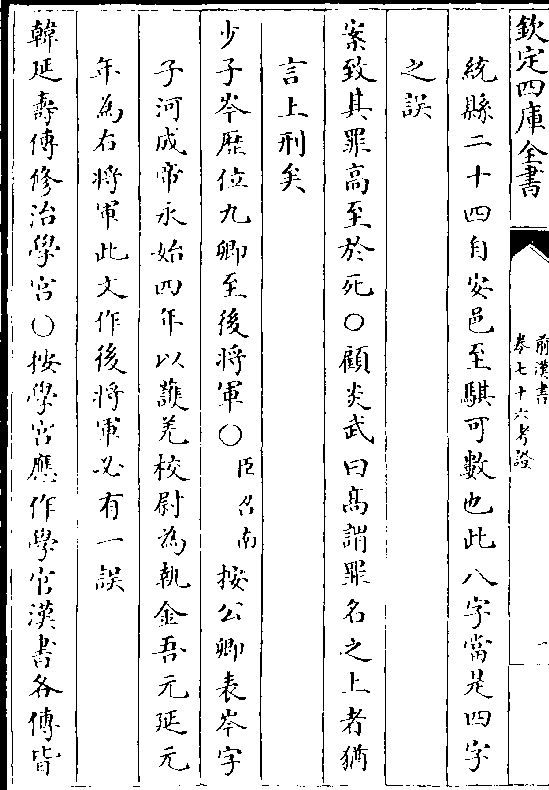 欽定四庫全書
前漢書
卷七十六考證
一
統縣二十四自安邑至騏可數也此八字當是四字
之誤
案致其罪高至於死○顧炎武曰高謂罪名之上者猶
言上刑矣
少子岑歷位九卿至後將軍○臣召南按公卿表岑字
子河成帝永始四年以護羌校尉為執金吾元延元
年為右將軍此文作後將軍必有一誤
韓延壽傳修治學宫○按學宫應作學官漢書各傳皆